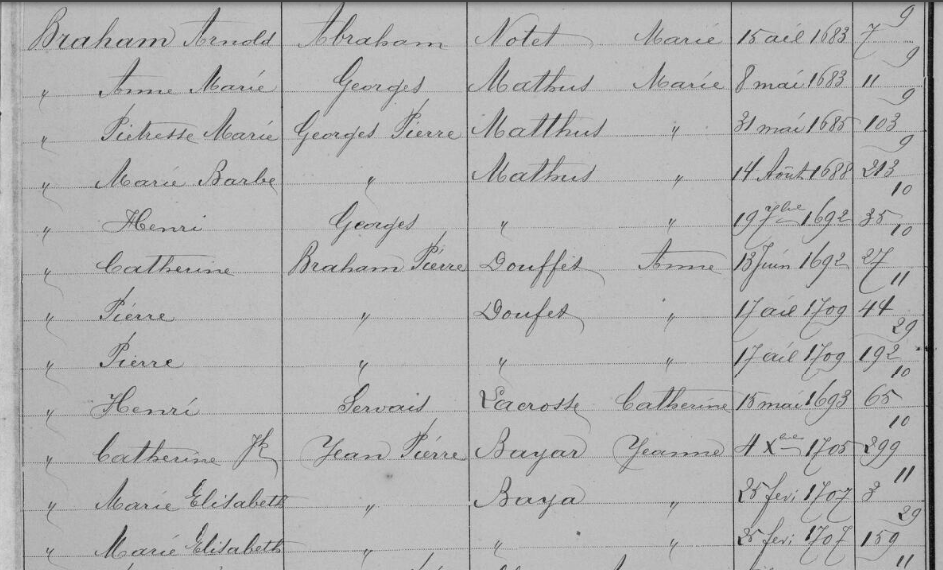 Braham Arnold Abraham Notet Marie 15 ail 1683 7 9
" Anne Marie Georges Mathus Marie 8 mai 1683 11 9
" Pietresse Marie Georges Pierre Matthus " 31 mai 1685 103 9
" Marie Barbe " Mathus " 14 Août 1688 213 9
" Henri Georges " " 19 7bre 1692 35 10
" Catherine Braham Pierre Douffet Anne 13 Juin 1692 27 10
" Pierre " Doufet " 17 ail 1709 44 11
" Pierre " " " 17 ail 1709 192 29
" Henri Servais Lacrosse Catherine 15 mai 1693 65 10
" Catherine Jean Pierre Bayar Jeanne 4 Xbre 1705 299 10
" Marie Elisabeth " Baya " 25 fevi 1707 3 11
" Marie Elisabeth " " " 25 fevi 1707 159 29
11